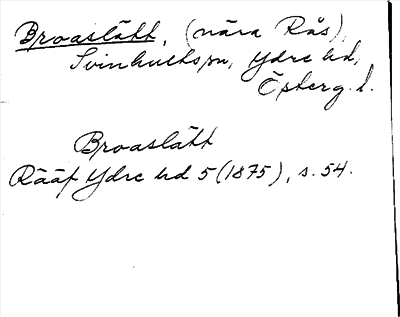 Broaslätt, (nära Rås),
Svinhults sn, Ydre hd,
Österg. l.
Broaslätt
Rääf Ydre hd 5 (1875), s. 54.